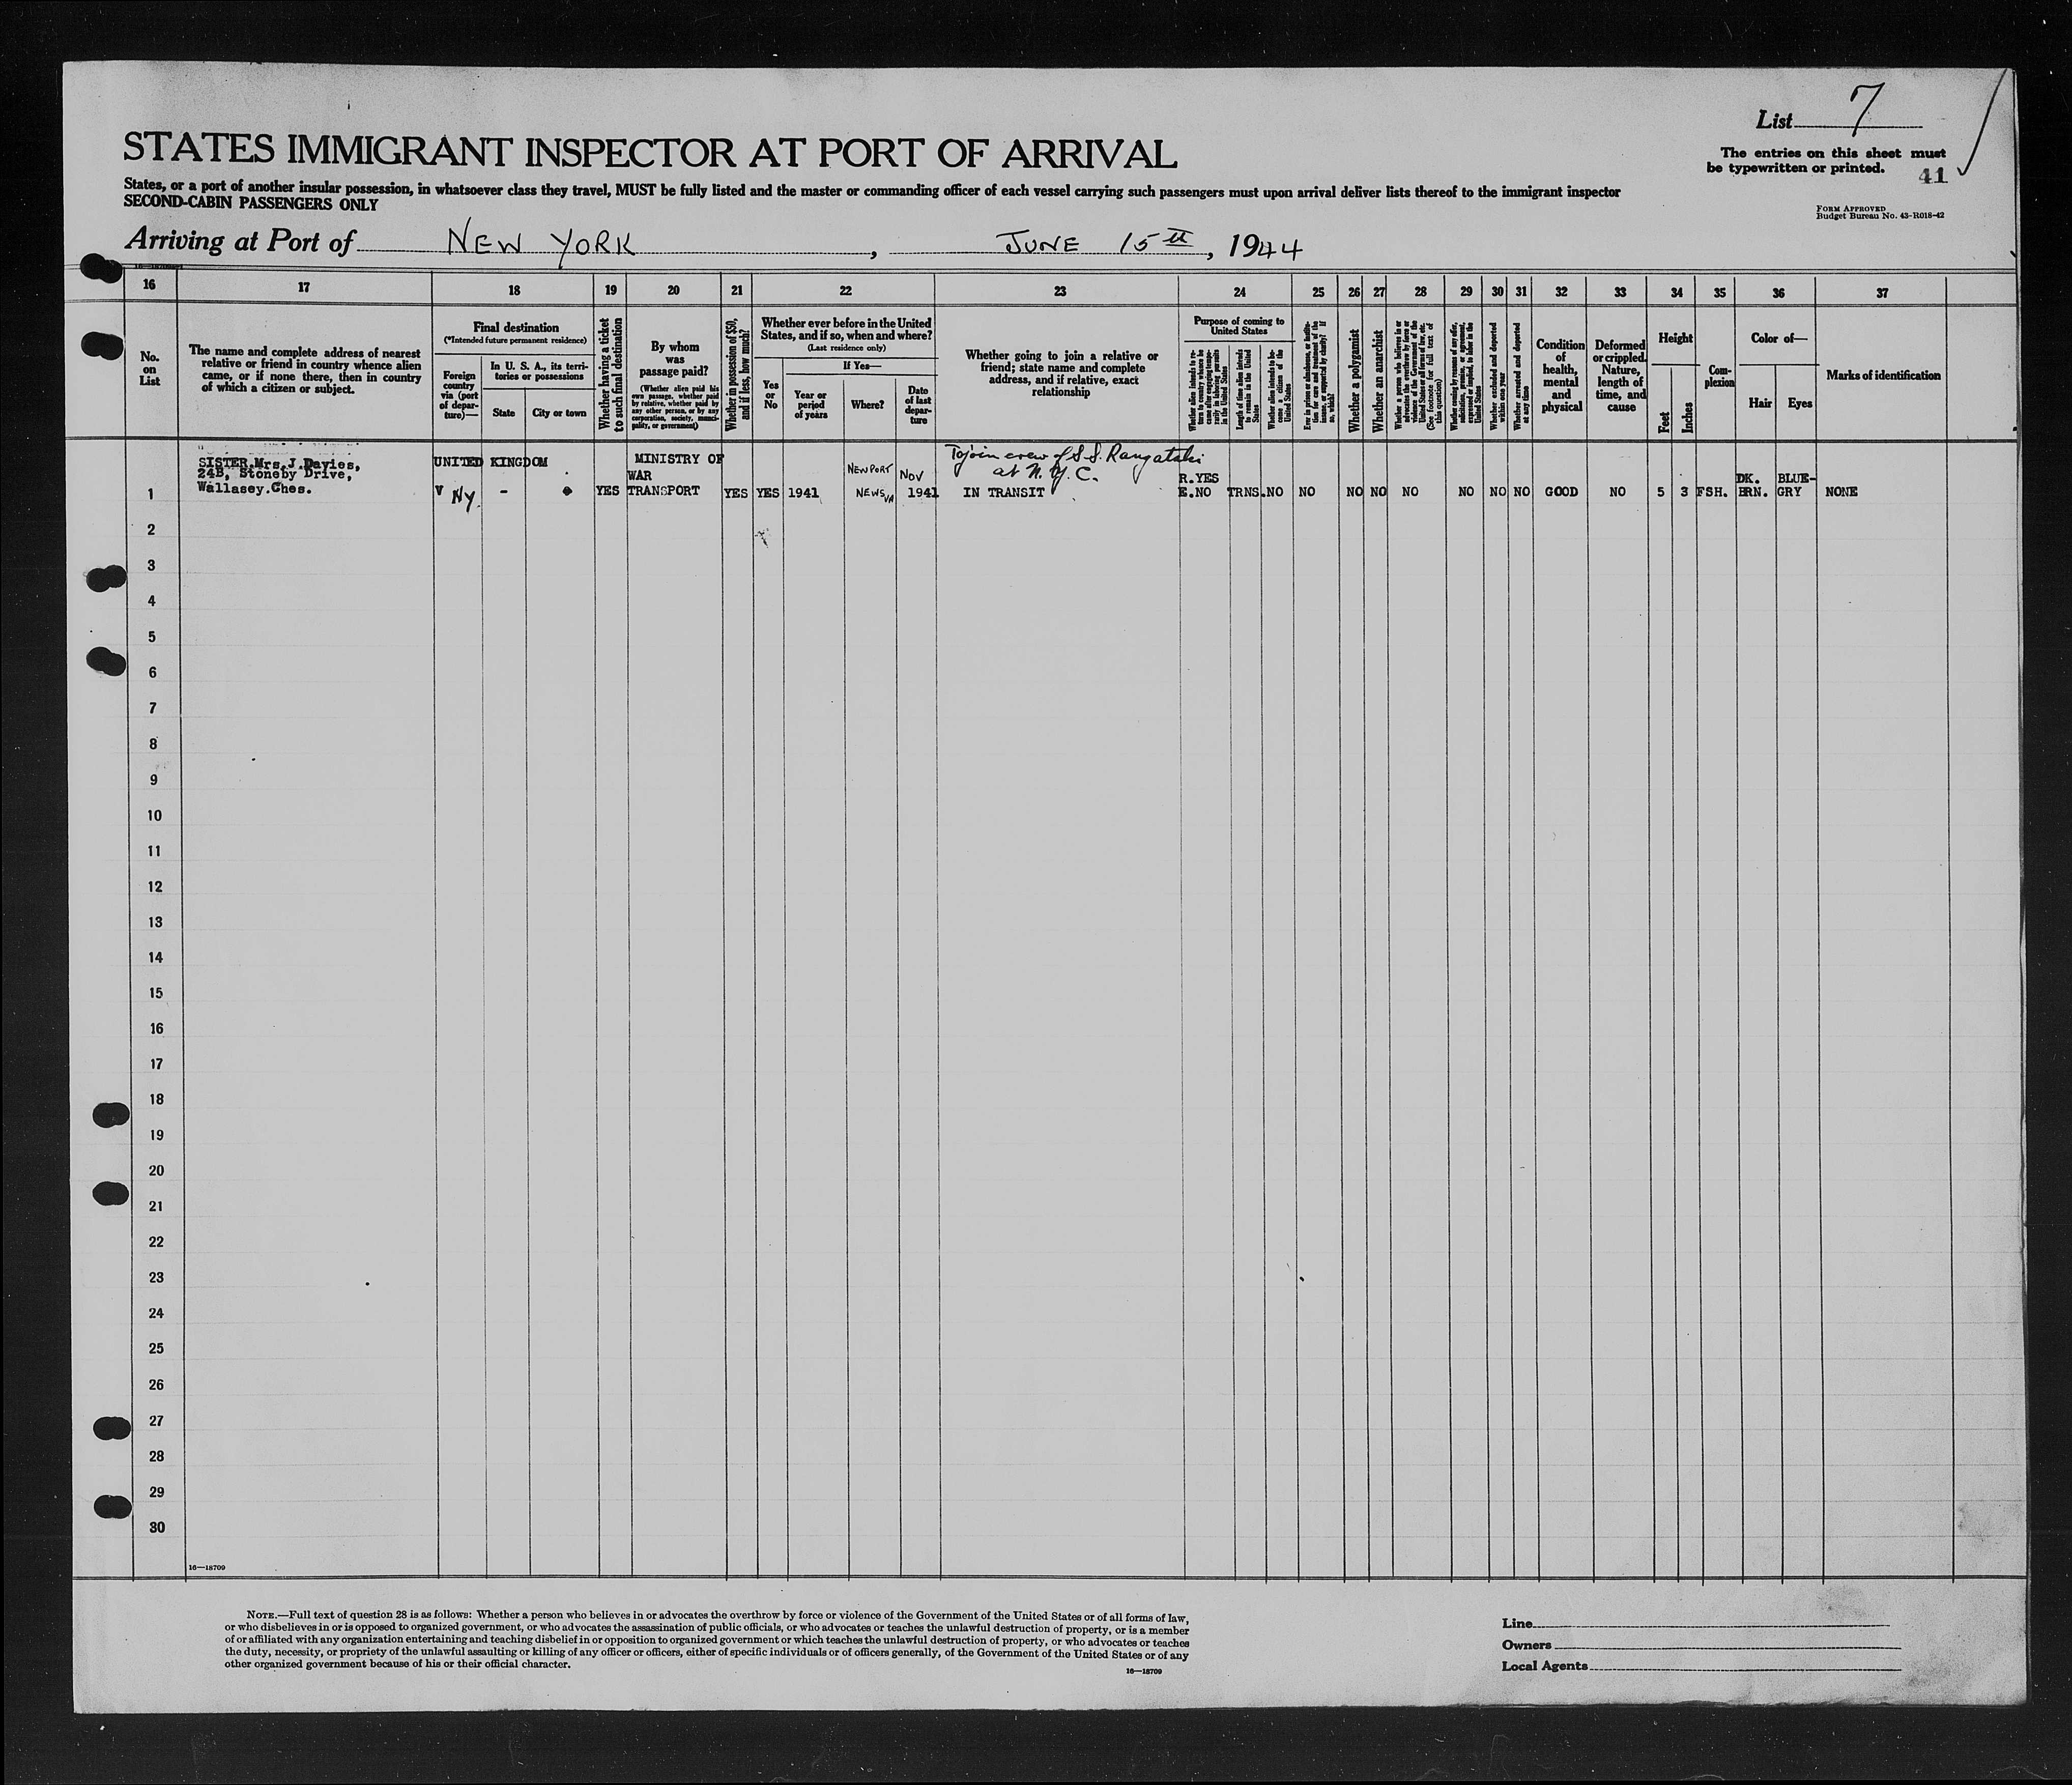 List 7
STATES IMMIGRANT INSPECTOR AT PORT OF ARRIVAL
The entries on this sheet must
be typewritten or printed.
41
States, or a port of another insular possession, in whatsoever class they travel, MUST be fully listed and the master or commanding officer of each vessel carrying such passengers must upon arrival deliver lists thereof to the immigrant inspector
SECOND-CABIN PASSENGERS ONLY
FORM APPROVED
Budget Bureau No. 43-R018-42
Arriving at Port of NEW YORK, JUNE 15th, 1944
16 17 18 19 20 21 22 23 24 25 26 27 28 29 30 31 32 33 34 35 36 37
No.
on
List
The name and complete address of nearest
relative or friend in country whence alien
came, or if none there, then in country
of which a citizen or subject.
Final destination
(*Intended future permanent residence)
Foreign
country
via (port
of depar-
ture)—
In U. S. A., its terri-
tories or possessions
State
City or town
Whether having a ticket
to such final destination
By whom
was
passage paid?
(Whether alien paid his
own passage, whether paid
by relative, whether paid by
any other person, or by any
corporation, society, munici-
pality, or government)
Whether in possession of $50,
and if less, how much?
Whether ever before in the United
States, and if so, when and where?
(Last residence only)
If Yes—
Yes
or
No
Year or
period
of years
Where?
Date
of last
depar-
ture
Whether going to join a relative or
friend; state name and complete
address, and if relative, exact
relationship
Purpose of coming to
United States
Whether alien intends to re-
turn to country whence he
came after engaging tempo-
rarily in laboring pursuits
in the United States
Length of time alien intends
to remain in the United
States
Whether alien intends to be-
come a citizen of the
United States
Ever in prison or almshouse, or institu-
tion for care and treatment of the
insane, or supported by charity? If
so, which?
Whether a polygamist
Whether an anarchist
Whether a person who believes in or
advocates the overthrow by force or
violence of the Government of the
United States or all forms of law, etc.
(See footnote for full text of
this question)
Whether coming by reason of any offer,
solicitation, promise, or agreement,
expressed or implied, to labor in the
United States
Whether excluded and deported
within one year
Whether arrested and deported
at any time
Condition
of
health,
mental
and
physical
Deformed
or crippled.
Nature,
length of
time, and
cause
Height
Feet
Inches
Com-
plexion
Color of—
Hair
Eyes
Marks of identification
SISTER.Mrs.J.Davies,
24B, Stoneby Drive,
Wallasey.Ches.
UNITED KINGDOM
V NY. -
YES
MINISTRY OF
WAR
TRANSPORT
YES YES 1941
NEWPORT
NEWS VA
NOV
1941
To join crew of S.S. Rangataki
at N.Y.C.
IN TRANSIT
R.YES
E.NO TRNS. NO NO NO NO NO NO NO NO GOOD NO 5 3 FSH.
DK.
BRN.
BLUE-
GRY
NONE
1
2
3
4
5
6
7
8
9
10
11
12
13
14
15
16
17
18
19
20
21
22
23
24
25
26
27
28
29
30
16—18709
NOTE.—Full text of question 28 is as follows: Whether a person who believes in or advocates the overthrow by force or violence of the Government of the United States or of all forms of law,
or who disbelieves in or is opposed to organized government, or who advocates the assassination of public officials, or who advocates or teaches the unlawful destruction of property, or is a member
of or affiliated with any organization entertaining and teaching disbelief in or opposition to organized government or which teaches the unlawful destruction of property, or who advocates or teaches
the duty, necessity, or propriety of the unlawful assaulting or killing of any officer or officers, either of specific individuals or of officers generally, of the Government of the United States or of any
other organized government because of his or their official character.
16—18709
Line
Owners
Local Agents